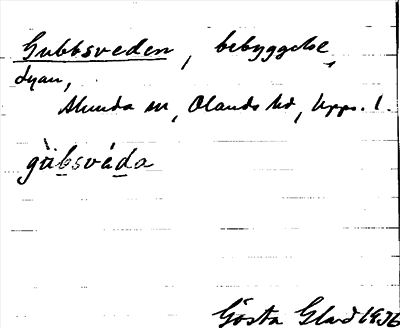 Gubbsveden, bebyggelse,
Alunda sn, Olands hd, Upps. l.
gùbsvéda
Gösta Glard 1936